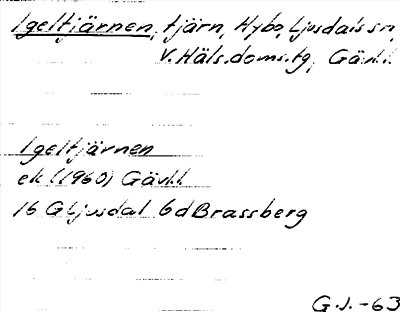 Igeltjärnen, tjärn, Hybo, Ljusdals sn,
V. Häls. doms. tg, Gävl.l.
Igeltjärnen
ek (1960) Gävl.l
16 G Ljusdal 6d Brassberg
G.J. -63